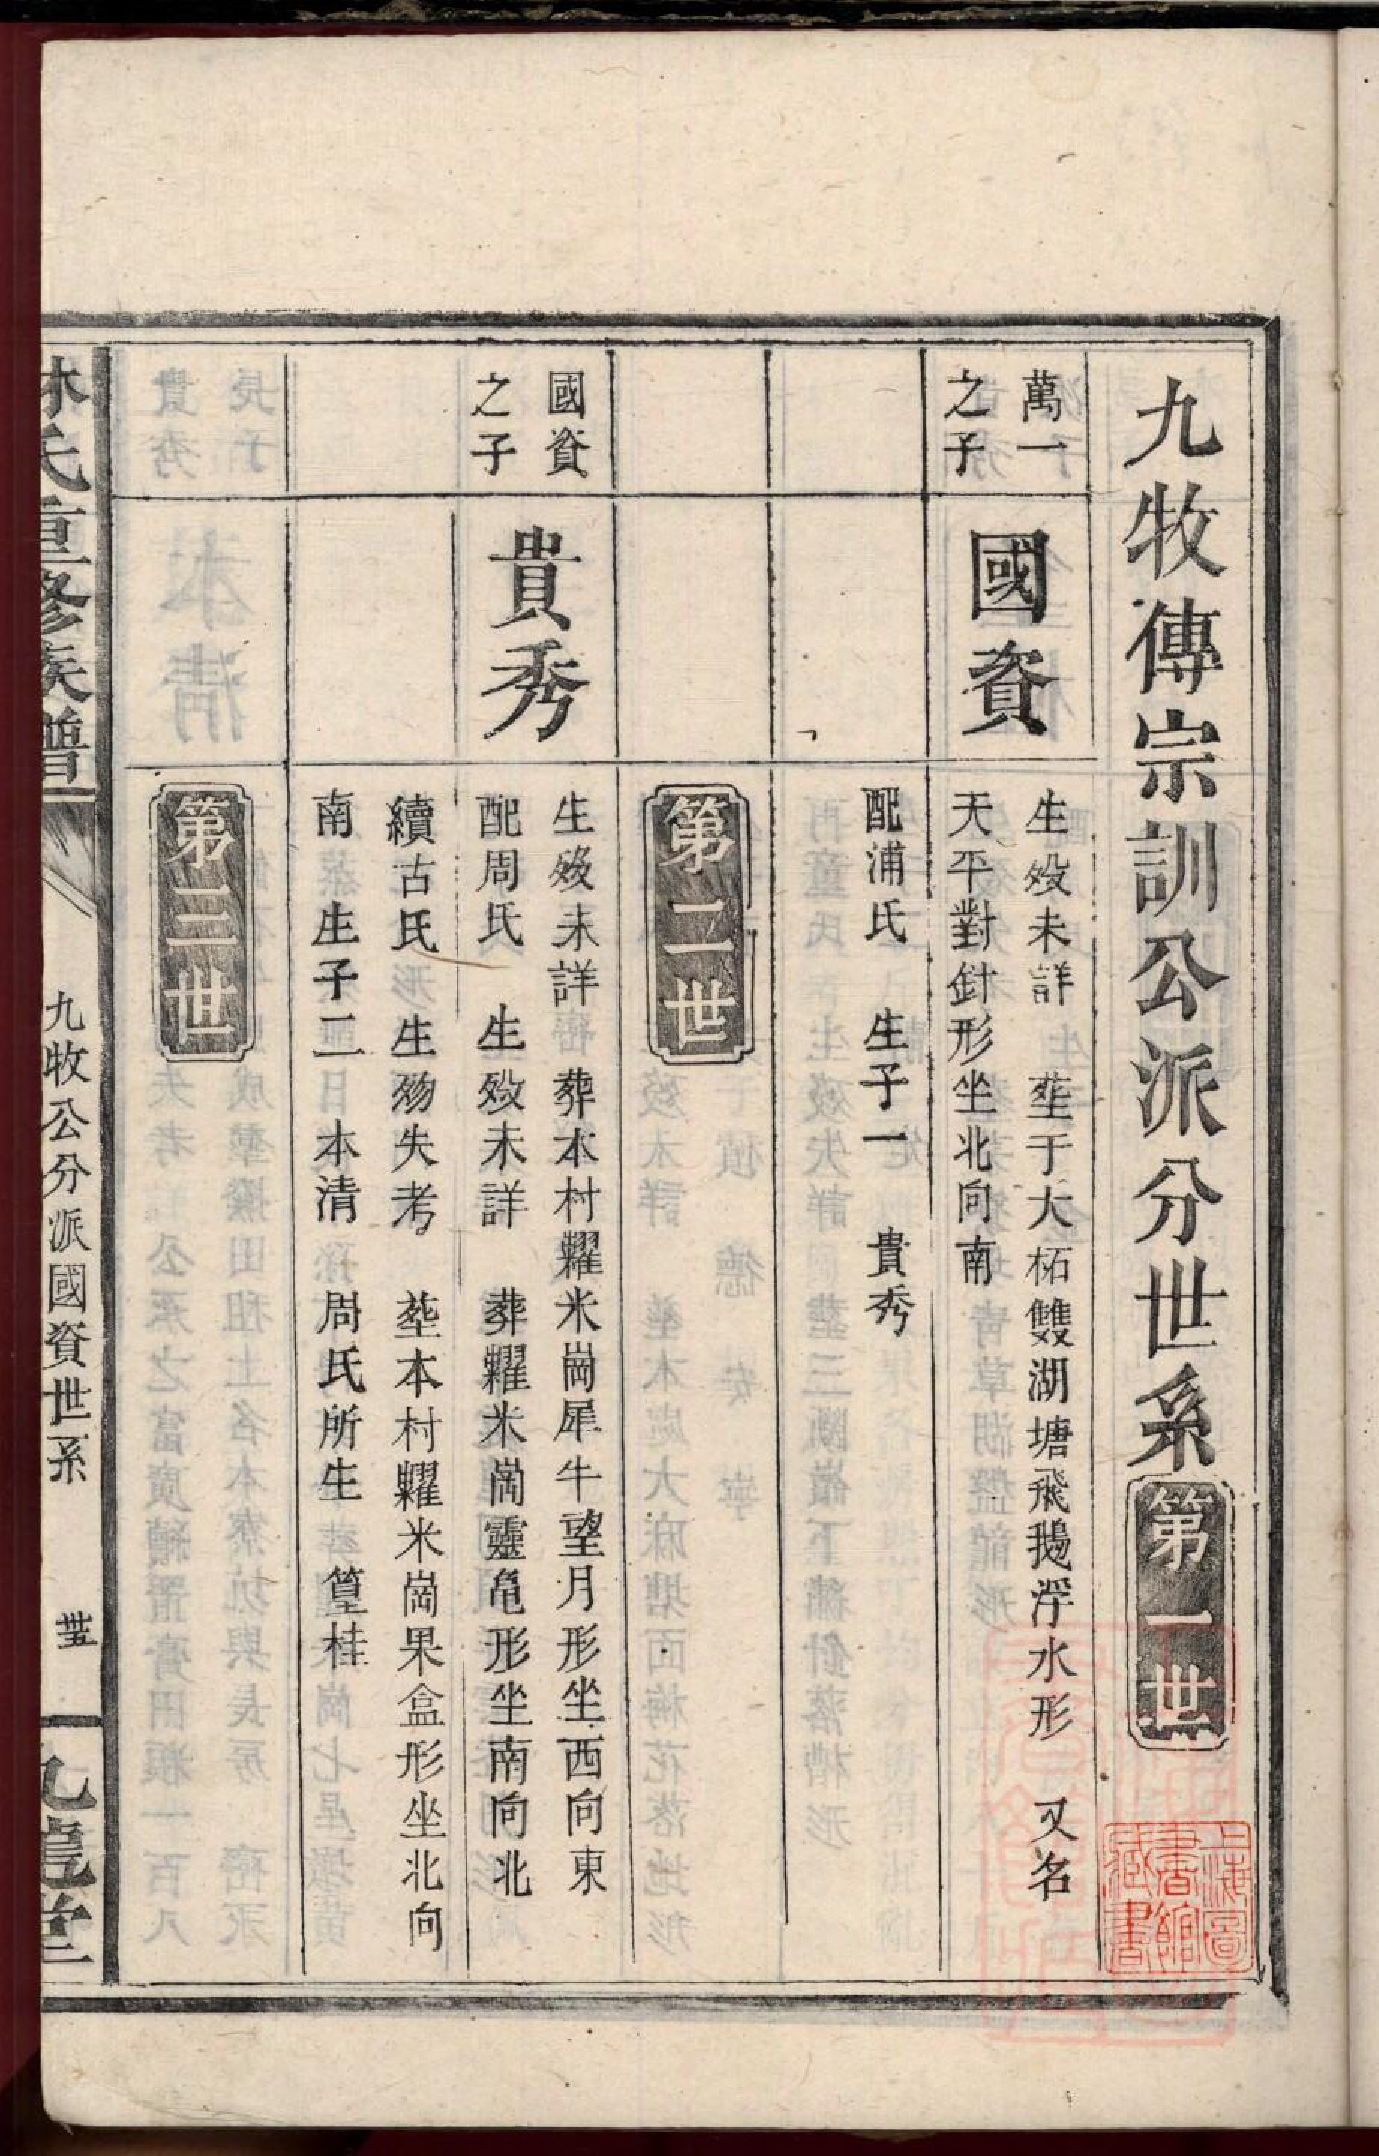 九牧傳宗訓公派分世系 第一世
萬一
之子
國資
生歿未詳 塟于大柘雙湖塘飛鵝浮水形 又名
天平對針形坐北向南
配浦氏 生子一 貴秀
第二世
國資
之子
貴秀
生歿未詳 葬本村糶米崗犀牛望月形坐西向東
配周氏 生歿未詳 葬糶米崗靈龟形坐南向北
續古氏 生歿失考 塟本村糶米崗果盒形坐北向
南 生子二 本清 周氏所生 篁桂
第三世
林氏重修族譜
九牧公分派國資世系
丗五
九龍堂
上海圖書館藏書